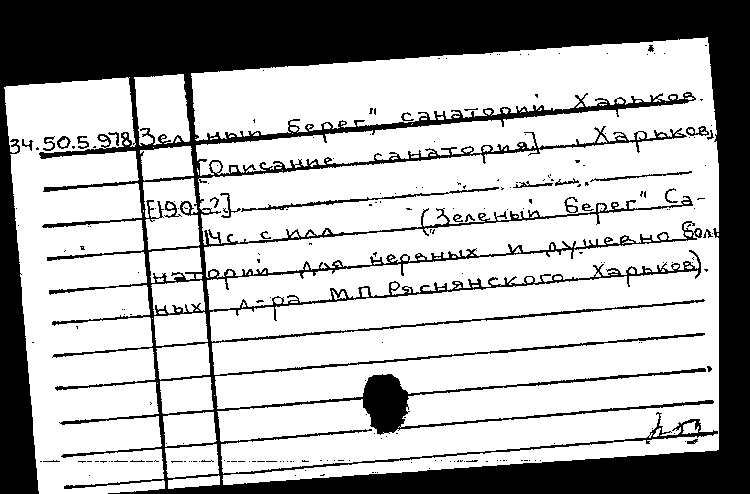 34.50.5.978 Зеленый берег", санаторий, Харьков.
[Описание санатория]. Харьков,
[190.?]
14с. с илл. („Зеленый берег" Са-
наторий для нервных и душевно боль
ных д-ра М.П. Ряснянского. Харьков).